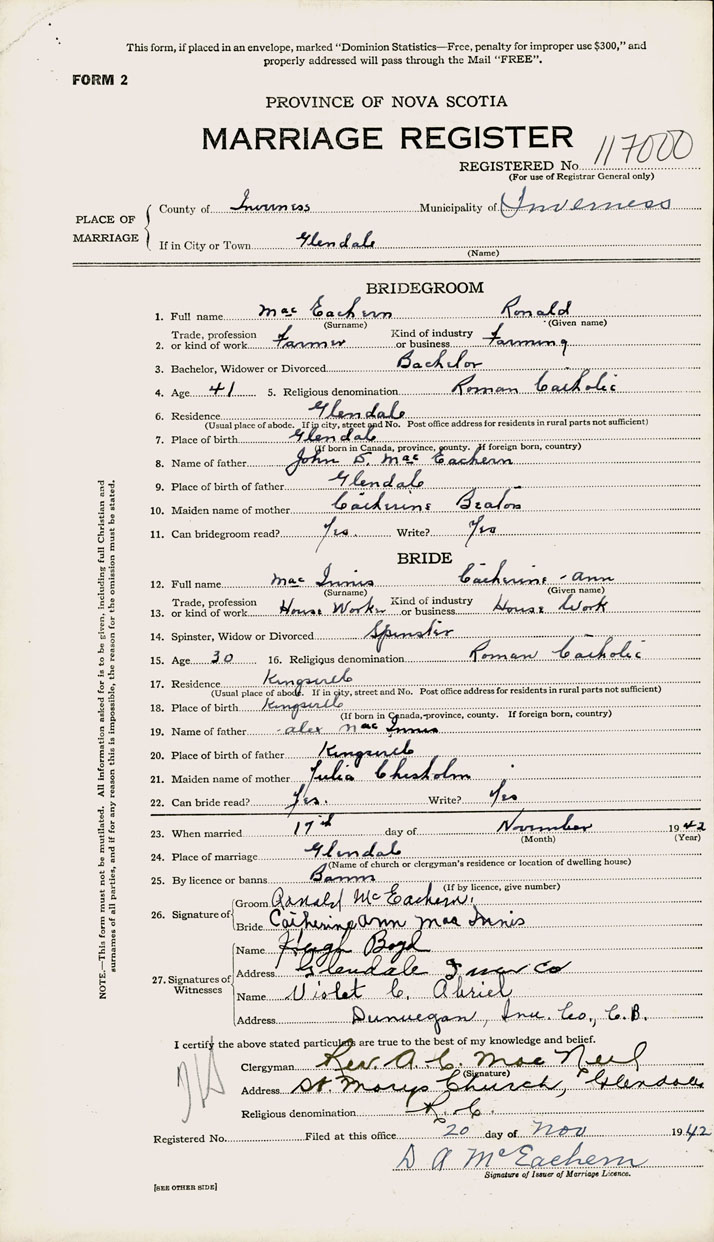 This form, if placed in an envelope, marked "Dominion Statistics—Free, penalty for improper use $300," and
properly addressed will pass through the Mail "FREE".
FORM 2
PROVINCE OF NOVA SCOTIA
MARRIAGE REGISTER
REGISTERED No. 117000
(For use of Registrar General only)
PLACE OF MARRIAGE
County of Inverness Municipality of Inverness
If in City or Town Glendale
(Name)
BRIDEGROOM
1. Full name Mac Eachern Ronald
(Surname) (Given name)
2. Trade, profession or kind of work Farmer Kind of industry or business Farming
3. Bachelor, Widower or Divorced Bachelor
4. Age 41 5. Religious denomination Roman Catholic
6. Residence Glendale
(Usual place of abode. If in city, street and No. Post office address for residents in rural parts not sufficient)
7. Place of birth Glendale
(If born in Canada, province, county. If foreign born, country)
8. Name of father John D. Mac Eachern
9. Place of birth of father Glendale
10. Maiden name of mother Catherine Beaton
11. Can bridegroom read? Yes. Write? Yes
BRIDE
12. Full name Mac Innis Catherine - Ann
(Surname) (Given name)
13. Trade, profession or kind of work House Worker Kind of industry or business House Work
14. Spinster, Widow or Divorced Spinster
15. Age 30 16. Religious denomination Roman Catholic
17. Residence Kingsville
(Usual place of abode. If in city, street and No. Post office address for residents in rural parts not sufficient)
18. Place of birth Kingsville
(If born in Canada, province, county. If foreign born, country)
19. Name of father Alex Mac Innis
20. Place of birth of father Kingsville
21. Maiden name of mother Julia Chisholm
22. Can bride read? Yes. Write? Yes
23. When married 17th day of November 1942
(Month) (Year)
24. Place of marriage Glendale
(Name of church or clergyman's residence or location of dwelling house)
25. By licence or banns Banns
(If by licence, give number)
26. Signature of
Groom Ronald McEachern.
Bride Catherine Ann Mac Innis
27. Signatures of Witnesses
Name Hugh Boyd
Address Glendale Inver Co
Name Violet C. Abriel
Address Dunvegan, Inv. Co., C.B.
I certify the above stated particulars are true to the best of my knowledge and belief.
Clergyman Rev. A. C. Mac Neil
(Signature)
Address St. Marys Church, Glendale
Religious denomination R. C.
Registered No. Filed at this office 20 day of Nov 1942
D A McEachern
Signature of Issuer of Marriage Licence.
[SEE OTHER SIDE]
NOTE.—This form must not be mutilated. All information asked for is to be given, including full Christian and
surnames of all parties, and if for any reason this is impossible, the reason for the omission must be stated.